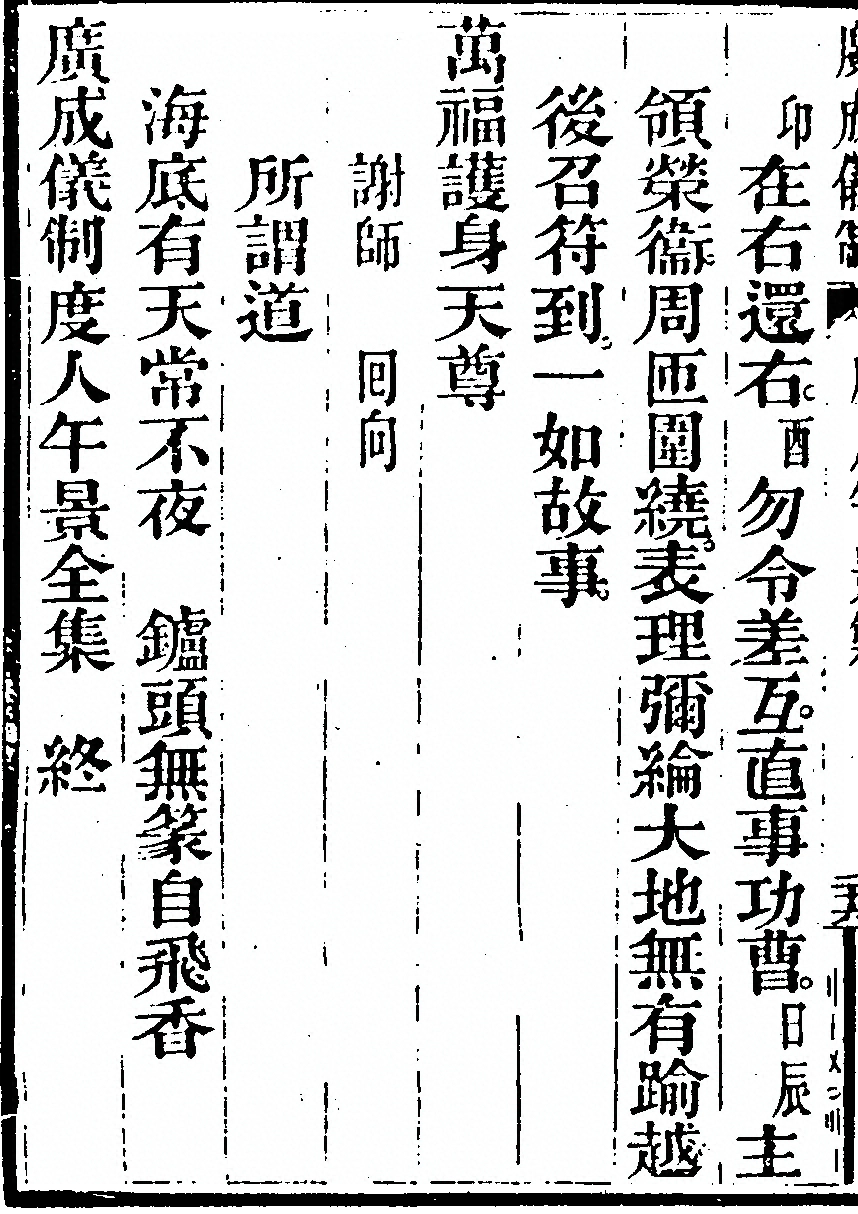 卯在右還右。酉勿令差互。直事功曹。日辰主
領榮衞。周匝圍繞。表理彌綸大地無有踰越
後召符到。一如故事。
萬福護身天尊
謝師　囘向
所謂道
海底有天常不夜　鑪頭無篆自飛香
廣成儀制度人午景全集　終